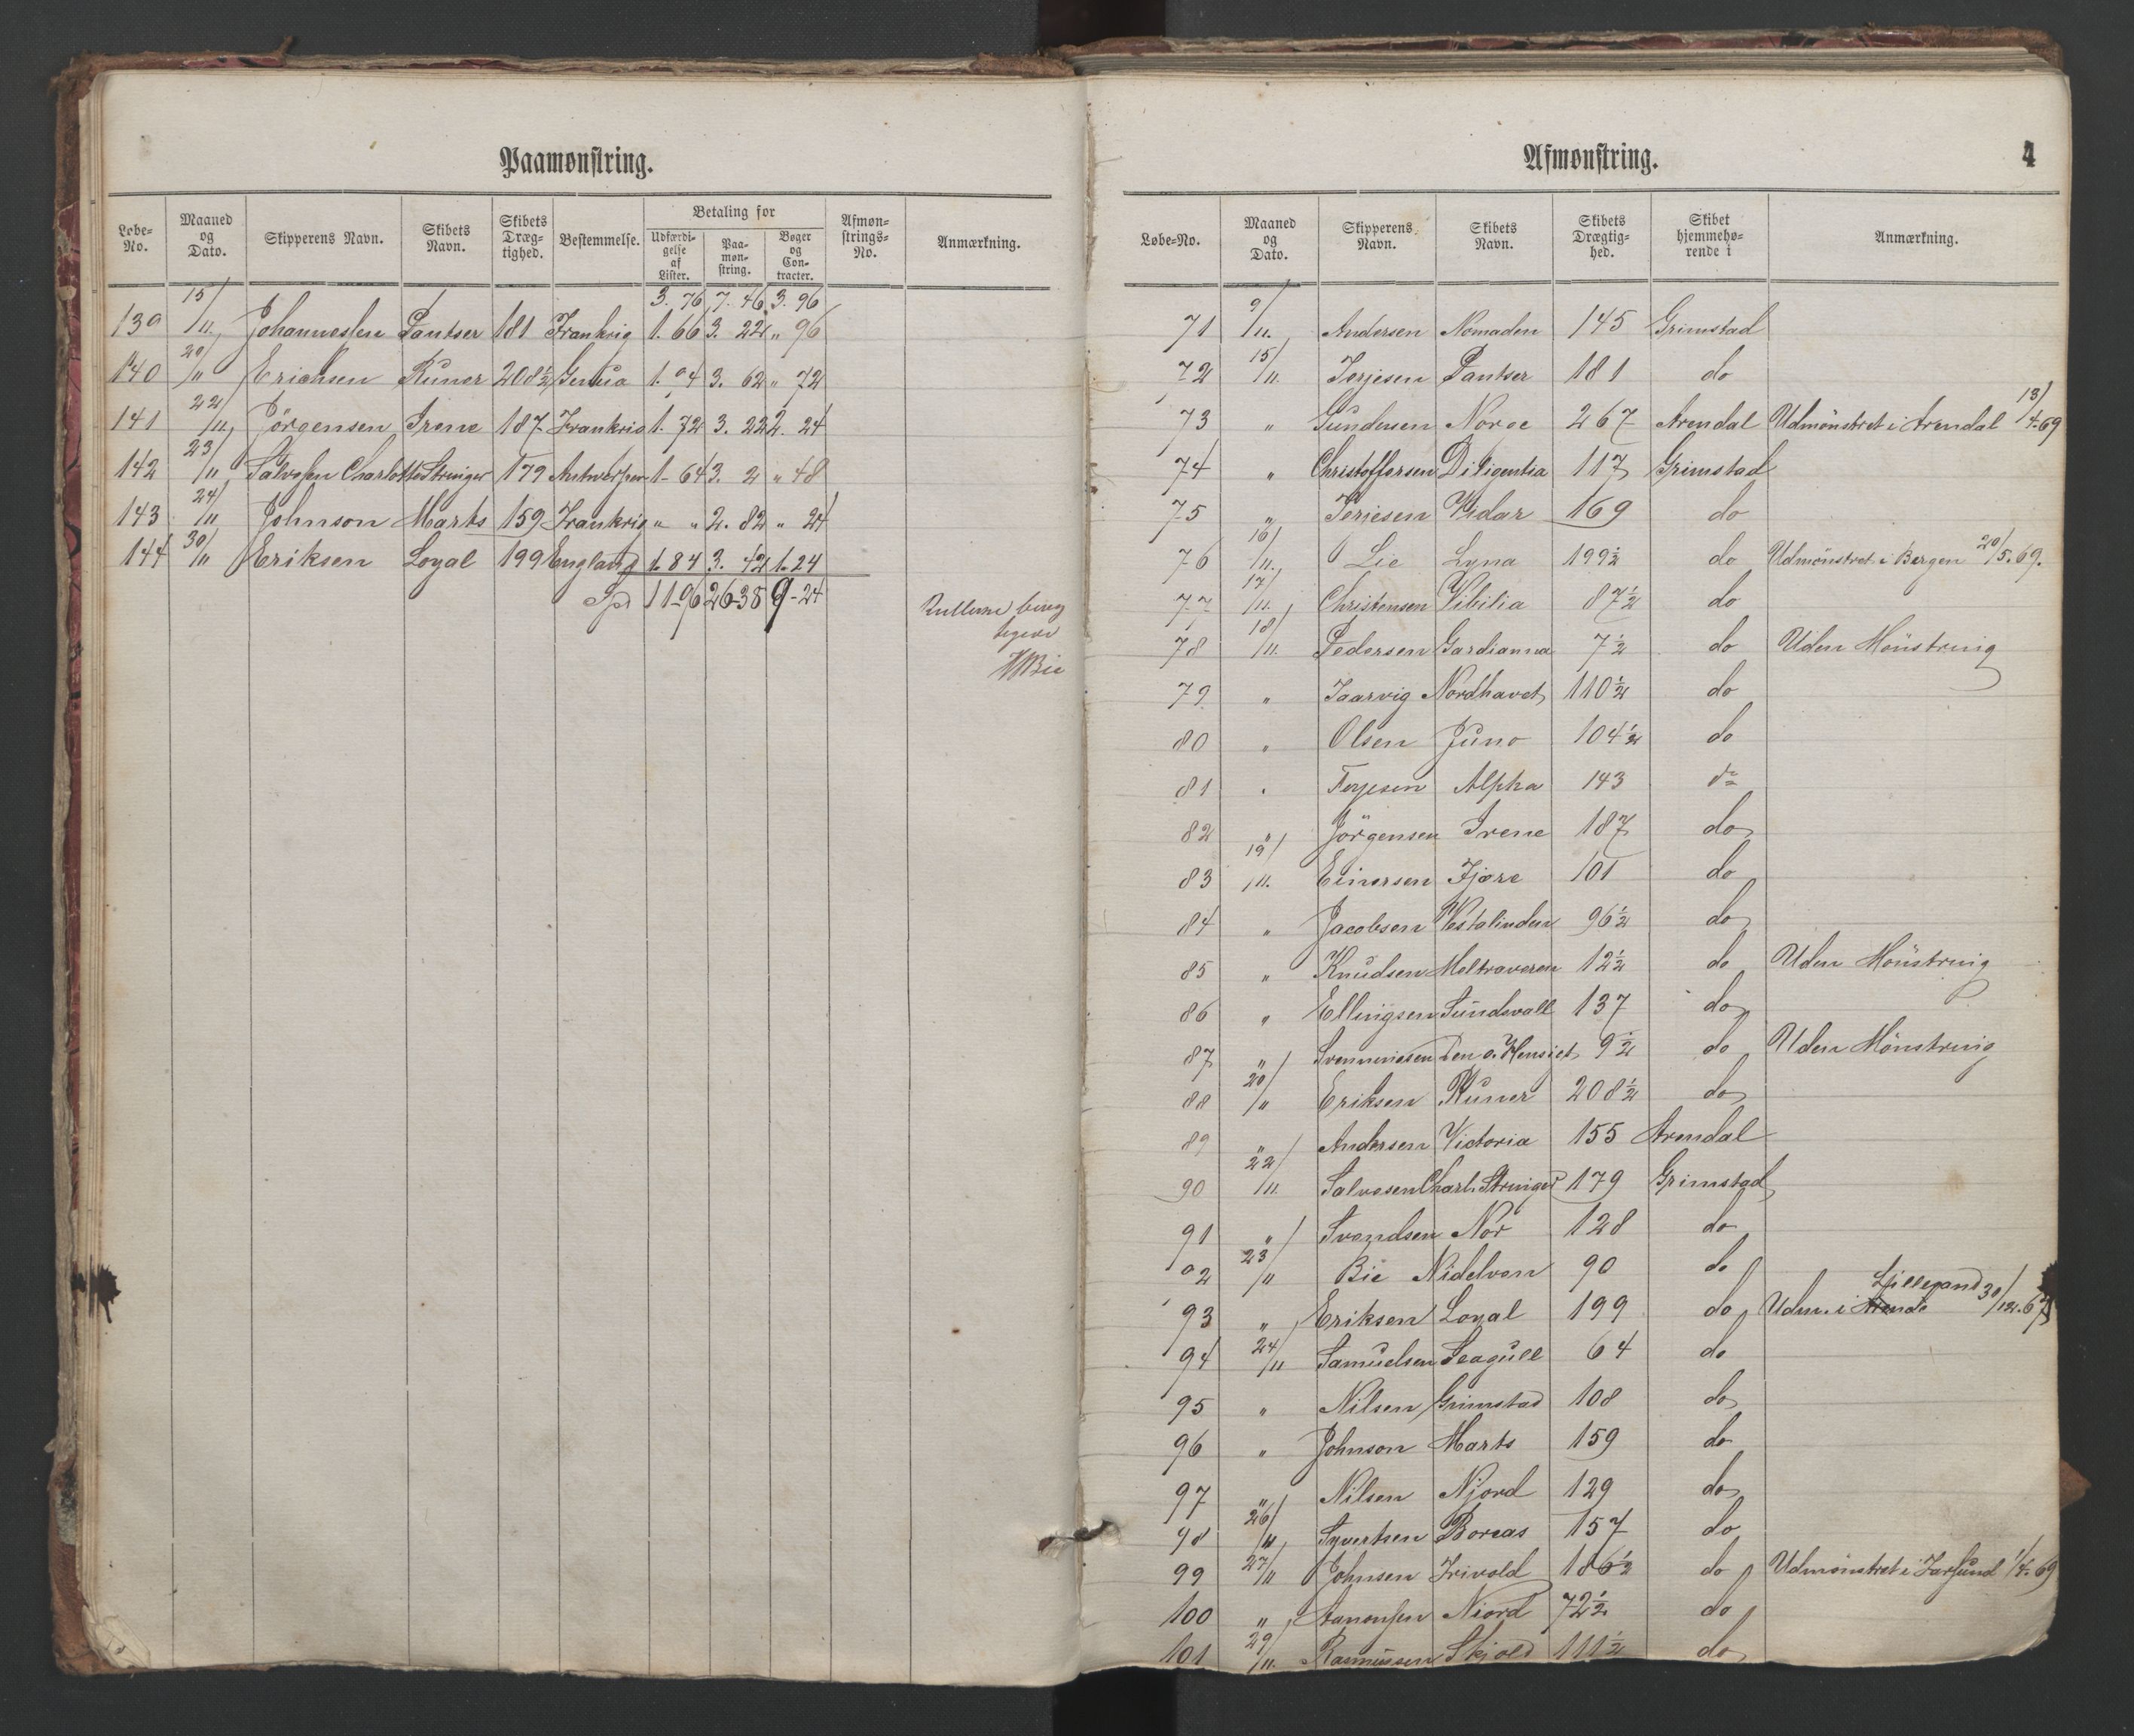 Paamønstring.
Løbe-No. Maaned og Dato. Skipperens Navn. Skibets Navn. Skibets Dræg-tighed. Bestemmelse. Betaling for Udfærdi-gelse af Lister. Paa-møn-string. Bøger og Con-tracter. Afmøn-strings-No. Anmærkning.
3. 76 7. 46 3. 96
139 15/11 Johannessen Pantser 181 Frankrig 1. 66 3. 22 " 96
140 20/" Erichsen Runer 208½ Genua 1. 04 3. 62 " 72
141 22/11 Jörgensen Irene 187 Frankrig 1. 72 3. 22 2. 24
142 23/11 Salvesen Charlotte Stringer 179 Antwerpen 1-64 3. 2 " 48
143 24/11 Johnson Marts 159 Frankrig " " 2. 82 " 24
144 30/" Eriksen Loyal 199 England 1. 84 3. 42 1. 24
Spd 11-96 26-38 9-24
Afmønstring. 4
Løbe-No. Maaned og Dato. Skipperens Navn. Skibets Navn. Skibets Drægtig-hed. Skibet hjemmehø-rende i Anmærkning.
71 9/11. Andersen Nomaden 145 Grimstad
72 15/11. Terjesen Pantser 181 do
73 " Gundersen Norge 267 Arendal Udmönstret i Arendal 13/4 69
74 " Christoffersen Diligentia 117 Grimstad
75 " Terjesen Vidar 169 do
76 16/11. Lie Lyna 199½ do Udmönstret i Bergen 20/5. 69.
77 17/11. Christensen Vibilia 87½ do
78 18/11. Pedersen Gardianna 7½ do Uden Mönstring
79 " Jaarvig Nordhavet 110½ do
80 " Olsen Juno 104½ do
81 " Terjesen Alpha 143 do
82 " Jörgensen Irene 187 do
83 19/11. Einersen Fjære 101 do
84 " Jacobsen Vestalinden 96½ do
85 " Knudsen 12½ do Uden Mönstring
86 " Ellingsen Sundsvall 137 do
87 " Den g. Hensigt 9½ do Uden Mönstring
88 20/" Eriksen Runer 208½ do
89 " Andersen Victoria 155 Arendal
90 22/11. Salvesen Charl. Stringer 179 Grimstad
91 " Svendsen Nor 128 do
92 23/" Bie Nidelven 90 do
93 " Eriksen Loyal 199 do Udm. i Lillesand 30/12. 67
94 24/11 Samuelsen Seagull 64 do
95 " Nilsen Grimstad 108 do
96 " Johnson Marts 159 do
97 " Nilsen Njord 129 do
98 26/11 Syvertsen Boreas 157 do
99 27/11 Johnsen Frivold 186½ do Udmönstret i Farsund 1/4. 69
100 " Aanonsen Niord 72½ do
101 29/11. Rasmussen Skjold 111½ do